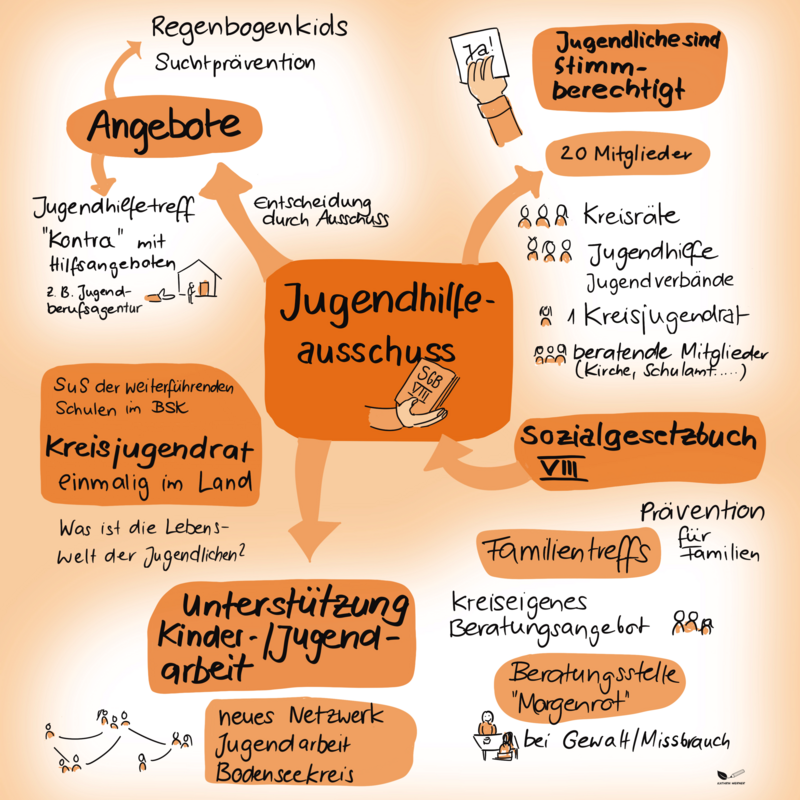 Regenbogenkids
Suchtprävention
Angebote
Jugendhilfetreff
"Kontra" mit
Hilfsangeboten
z. B. Jugend-
berufsagentur
Entscheidung
durch Ausschuss
Ja!
Jugendliche sind
Stimm-
berechtigt
20 Mitglieder
Kreisräte
Jugendhilfe
Jugendverbände
1 Kreisjugendrat
beratende Mitglieder
(Kirche, Schulamt.....)
Jugendhilfe-
ausschuss
SGB
VIII
SuS der weiterführenden
Schulen im BSK
Kreisjugendrat
einmalig im Land
Was ist die Lebens-
welt der Jugendlichen?
Sozialgesetzbuch
VIII
Prävention
für
Familien
Familientreffs
Kreiseigenes
Beratungsangebot
Beratungsstelle
"Morgenrot"
bei Gewalt/Missbrauch
Unterstützung
Kinder-/Jugend-
arbeit
neues Netzwerk
Jugendarbeit
Bodenseekreis